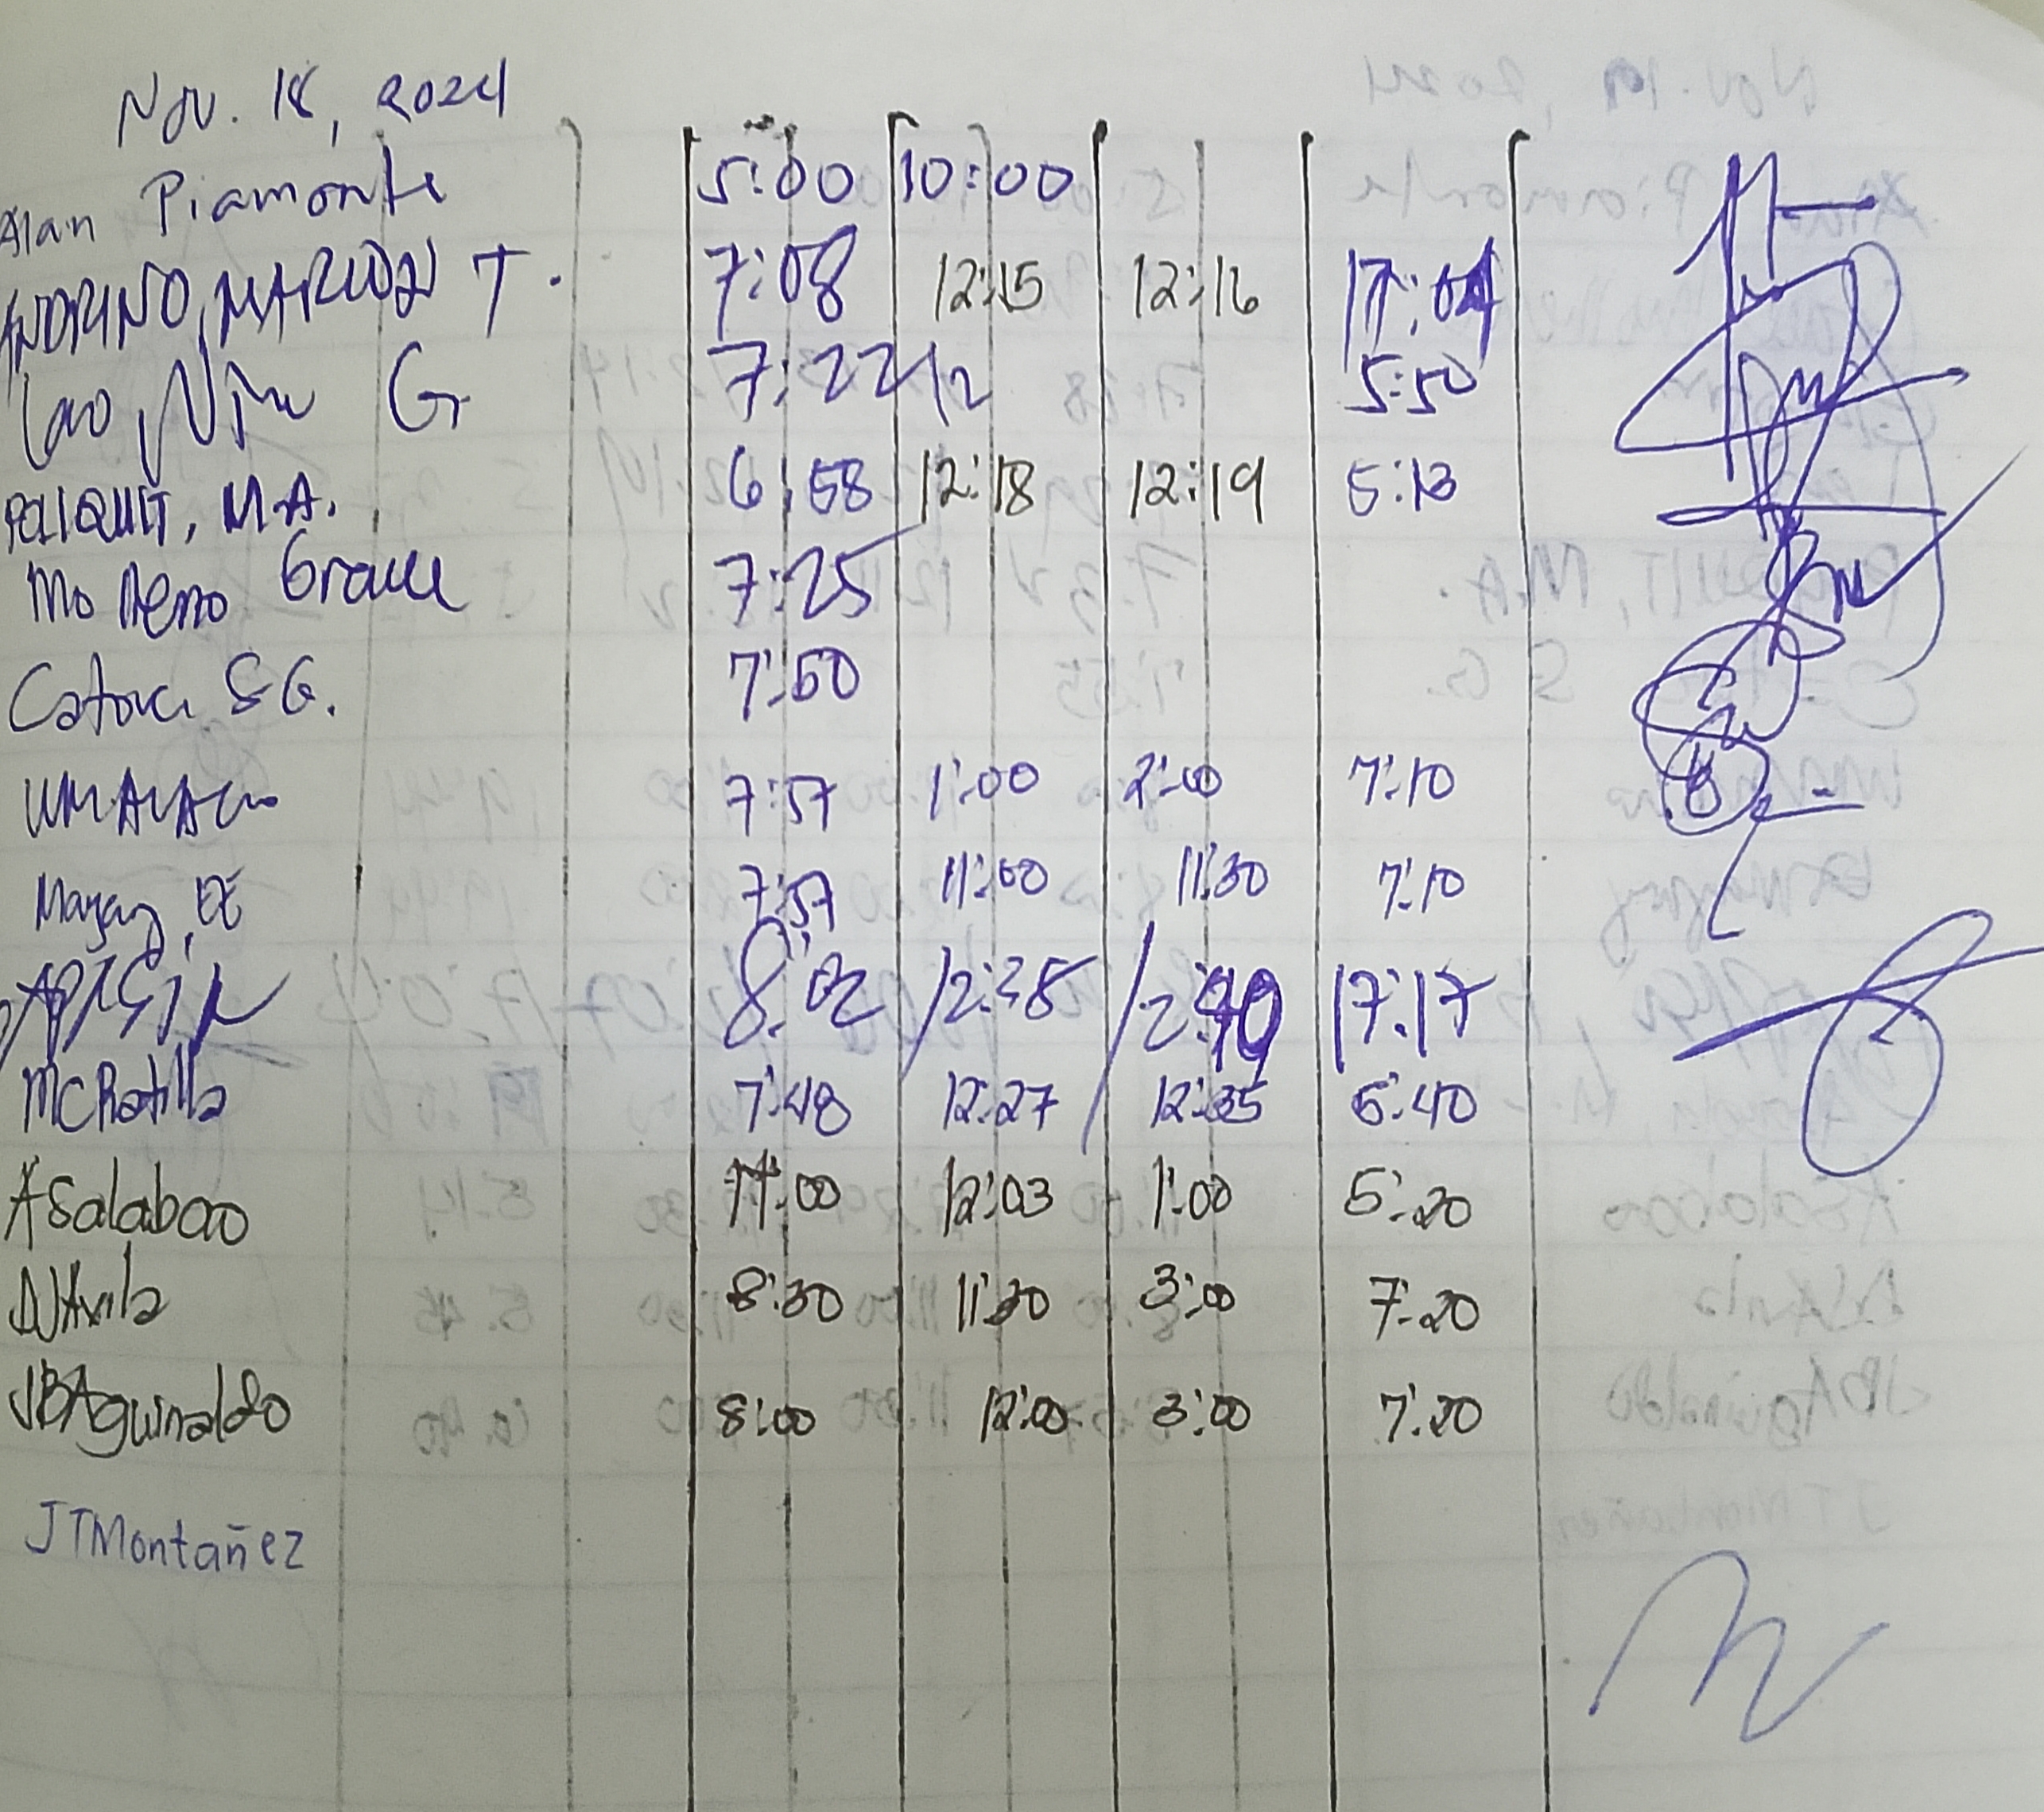 Nov. 18, 2024
Alan Piamonte 5:00 10:00
ANDRINO, MARLON T. 7:08 12:15 12:16 17:04
Lao, G. 7:22 12 5:50
POLIQUIT, M.A. 6:58 12:18 12:19 5:13
Moreno Grace 7:25
S.G. 7:50
7:57 1:00 2:00 7:10
Magay, EE 7:57 11:00 11:30 7:10
8:02 12:38 12:40 17:17
MCRotilla 7:48 12:27 12:35 5:40
ASalabao 11:00 12:03 1:00 5:20
DJAvila 8:30 11:30 3:00 7:20
JBAguinaldo 8:00 12:00 3:00 7:20
JTMontañez